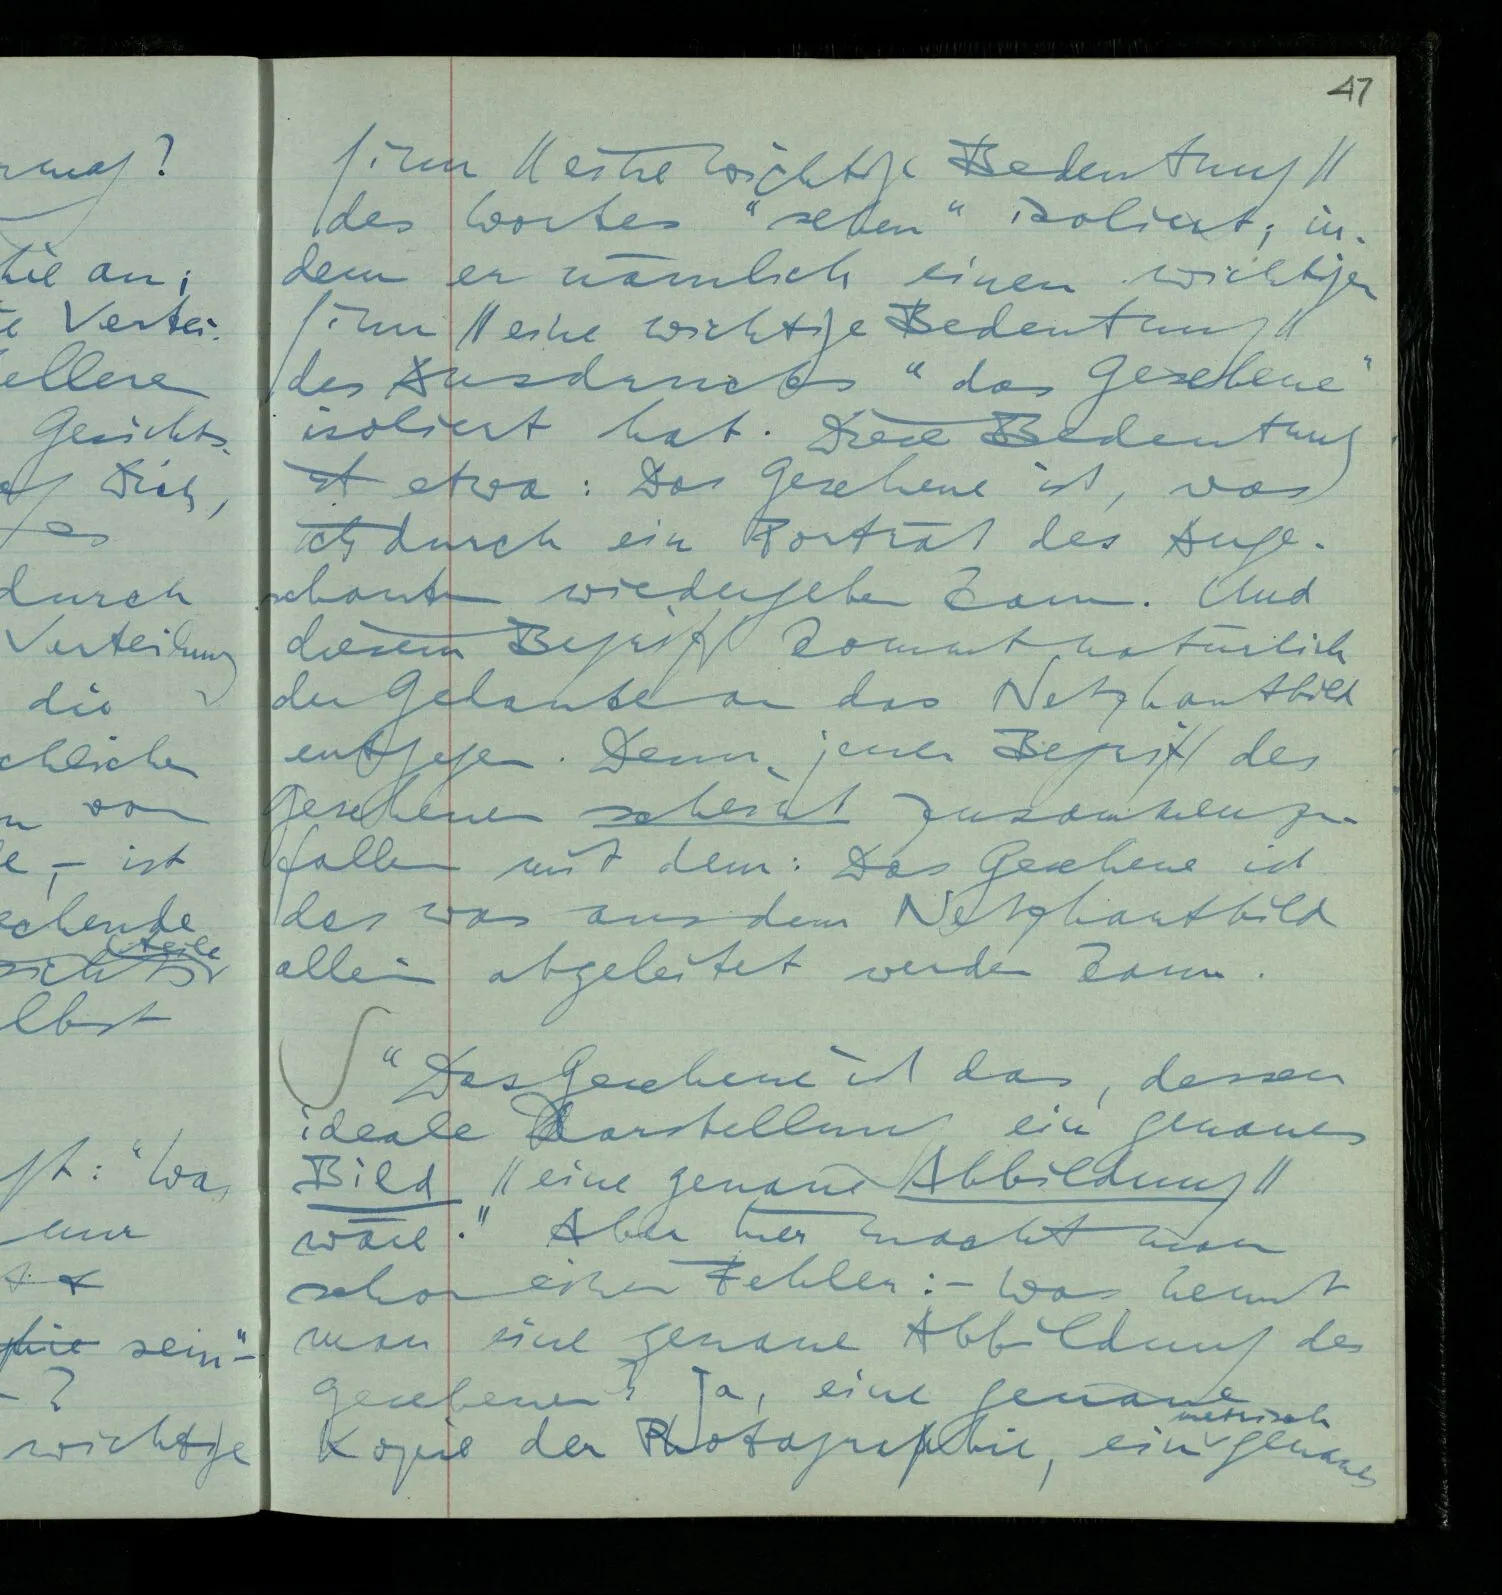 47
Sinn // eine wichtige Bedeutung //
des Wortes "sehen" isoliert; in-
dem er nämlich einen wichtigen
Sinn // eine wichtige Bedeutung //
des Ausdrucks "das Gesehene"
isoliert hat. Diese Bedeutung
ist etwa: Das Gesehene ist, was
ich durch ein Porträt des Ange-
schauten wiedergeben kann. Und
diesem Begriff kommt natürlich
der Gedanke an das Netzhautbild
entgegen. Denn, jener Begriff des
Gesehenen scheint zusammenzu-
fallen mit dem: Das Gesehene ist
das was aus dem Netzhautbild
allein abgeleitet werden kann.
∫ "Das Gesehene ist das, dessen
ideale Darstellung ein genaues
Bild // eine genaue Abbildung //
wäre." Aber hier macht man
schon einen Fehler: – Was nennt
man eine genaue Abbildung des
Gesehenen? Ja, eine genaue
Kopie der Photographie, ein metrisch genaues
hie an;
e Vertei-
ellere
Gesichts-
Dich,
es
durch
Verteilung
die
chlichen
von
e, – ist
echende
teile
lbst
"Was
nur
sein"–
– ?
wichtige